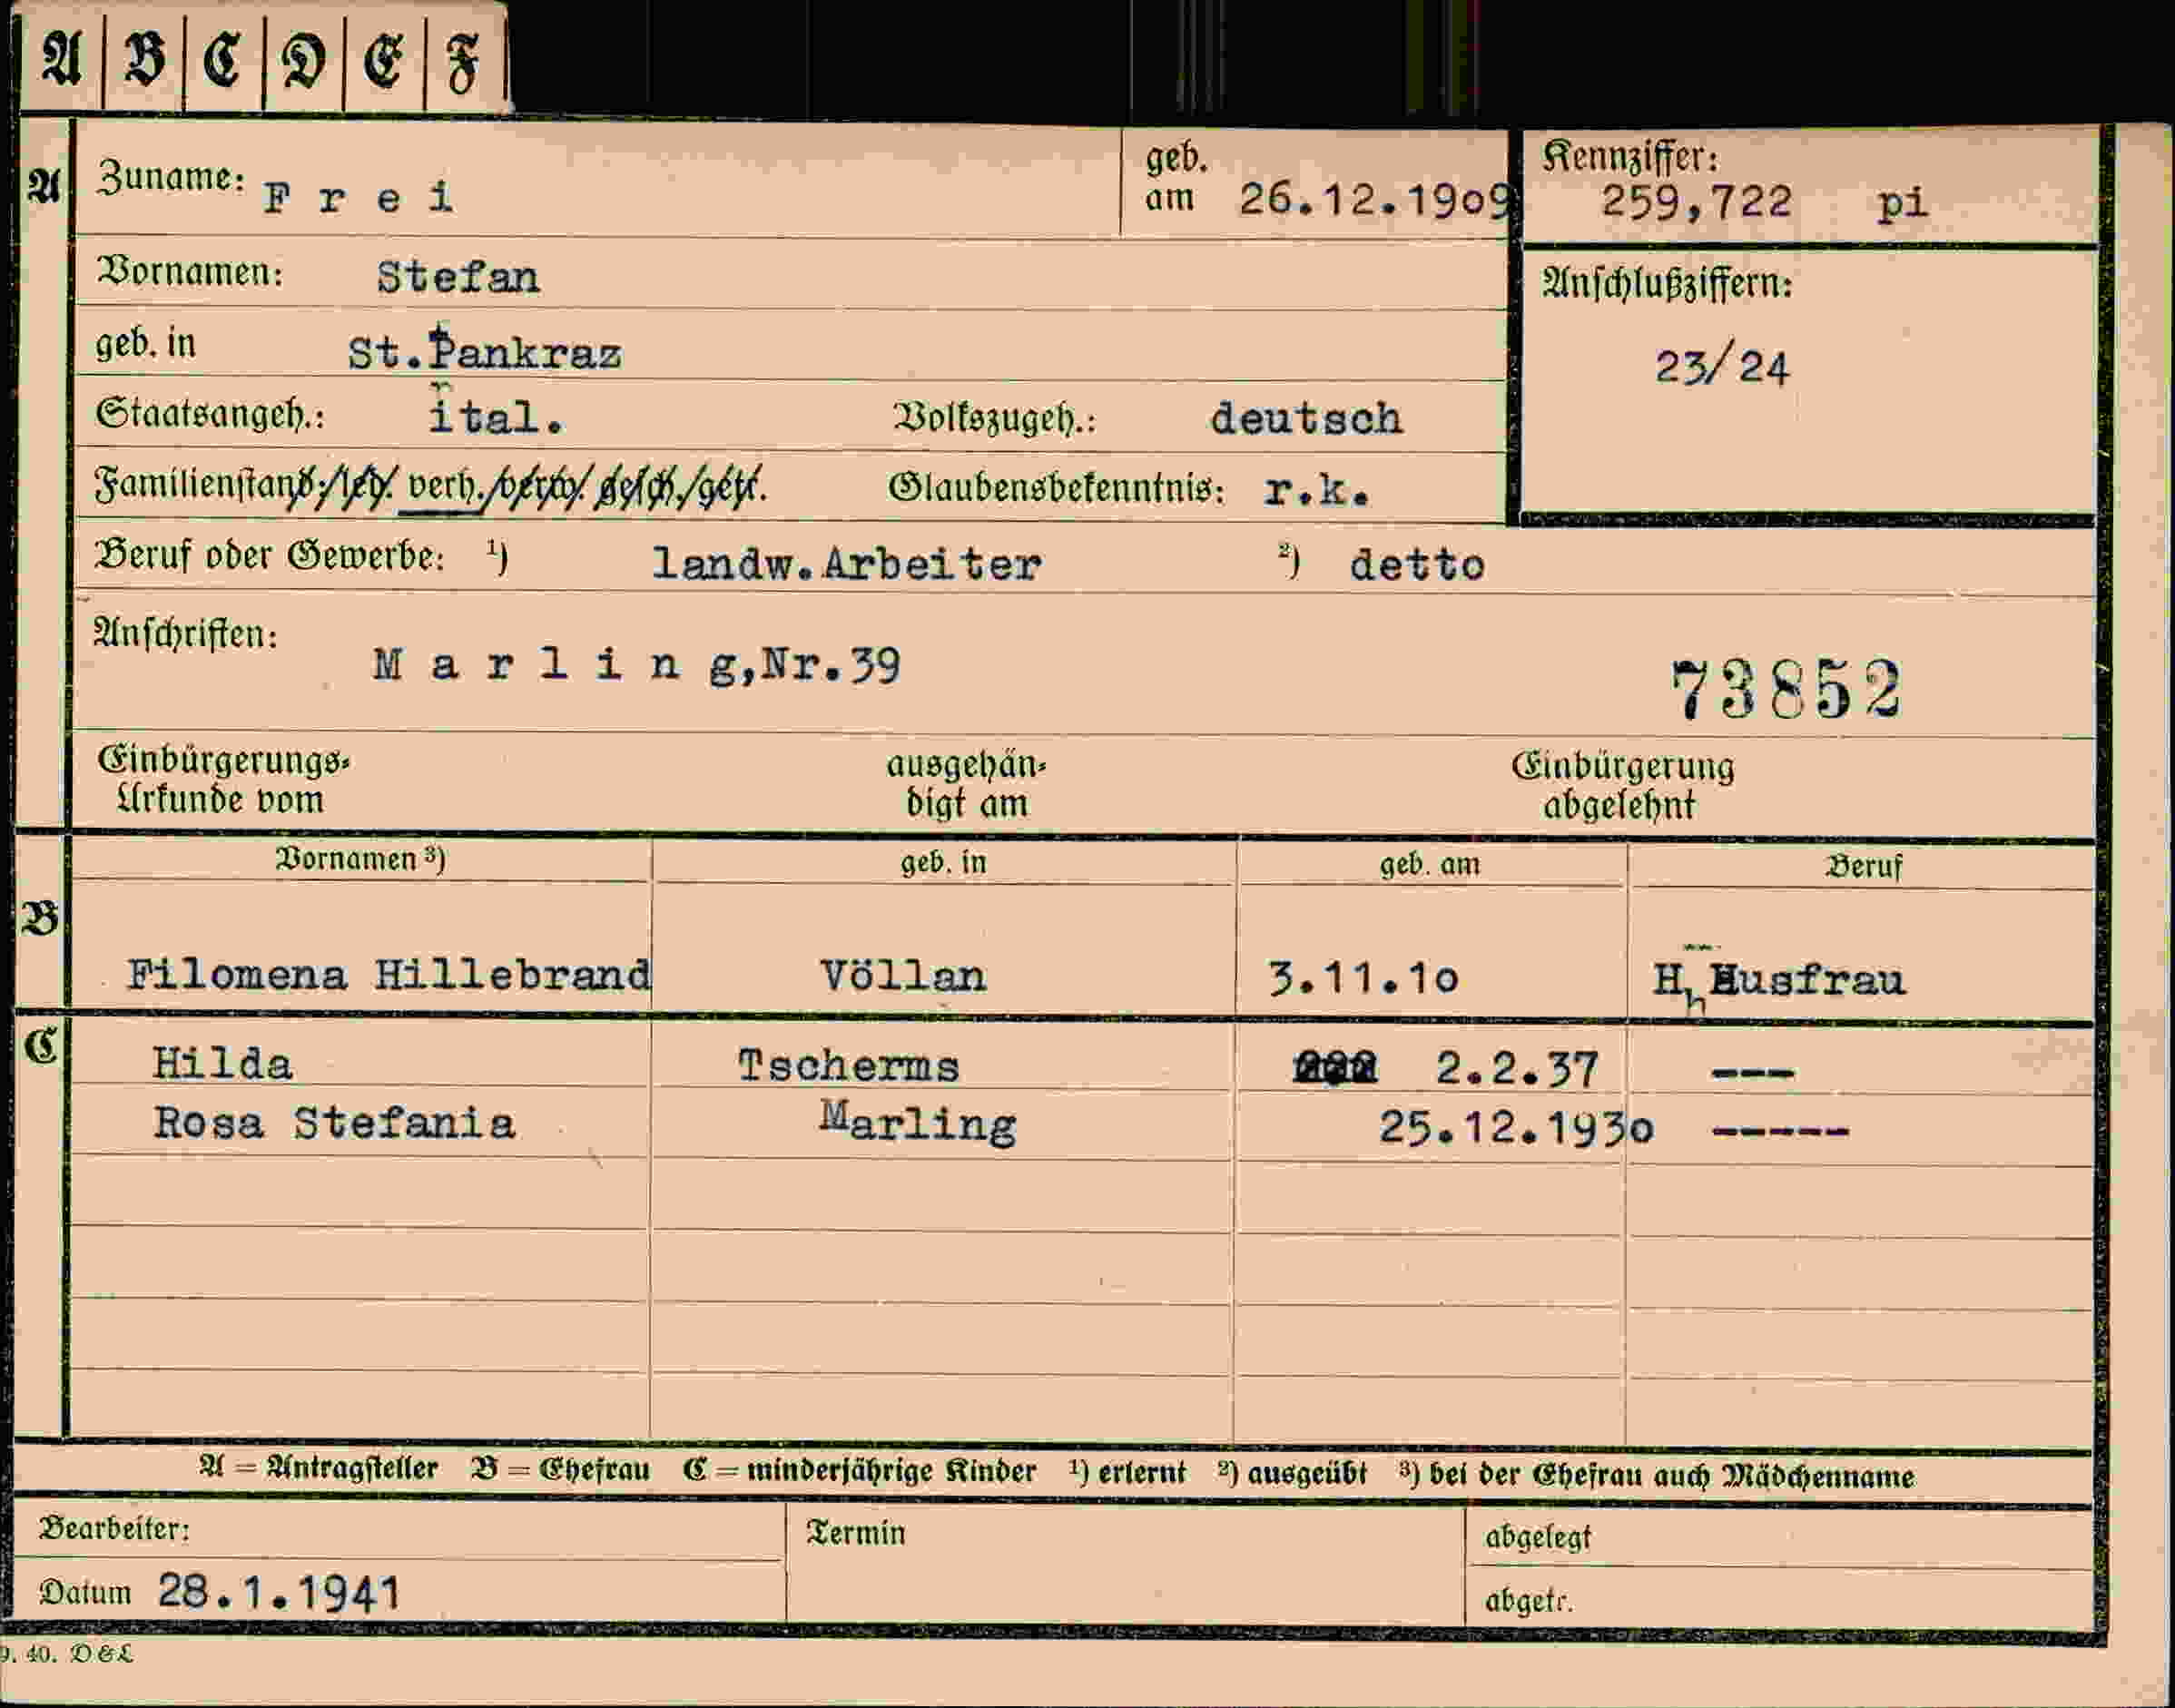 A B C D E F
A Zuname: F r e i geb. am 26.12.19o9 Kennziffer: 259,722 pi
Vornamen: Stefan Anschlußziffern:
geb. in St.Pankraz 23/24
Staatsangeh.: ital. Volkszugeh.: deutsch
Familienstand: led. verh. verw. gesch. getr. Glaubensbekenntnis: r.k.
Beruf oder Gewerbe: 1) landw.Arbeiter 2) detto
Anschriften: M a r l i n g,Nr.39 73852
Einbürgerungs- ausgehän- Einbürgerung
Urkunde vom digt am abgelehnt
Vornamen 3) geb. in geb. am Beruf
B Filomena Hillebrand Völlan 3.11.1o H Husfrau
C Hilda Tscherms 2.2.37 ---
Rosa Stefania Marling 25.12.193o -----
A = Antragsteller B = Ehefrau C = minderjährige Kinder 1) erlernt 2) ausgeübt 3) bei der Ehefrau auch Mädchenname
Bearbeiter: Termin abgelegt
Datum 28.1.1941 abgetr.
9. 40. D & L